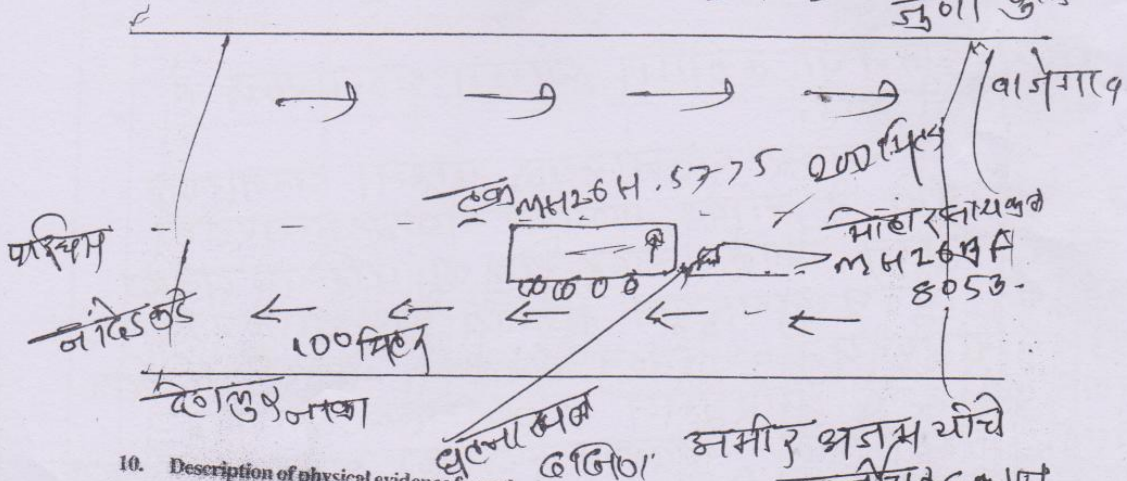 जुना
वाजेगाव
ट्रक MH26H.5775 200 मिटर
मोटारसायकल
MH26
8053.
पश्चिम
नांदेडकडे
100 मिटर
देगलुर नाका
घटनास्थळ
दक्षिण
अमीर अजाम यांचे
10. Description of physical evidence